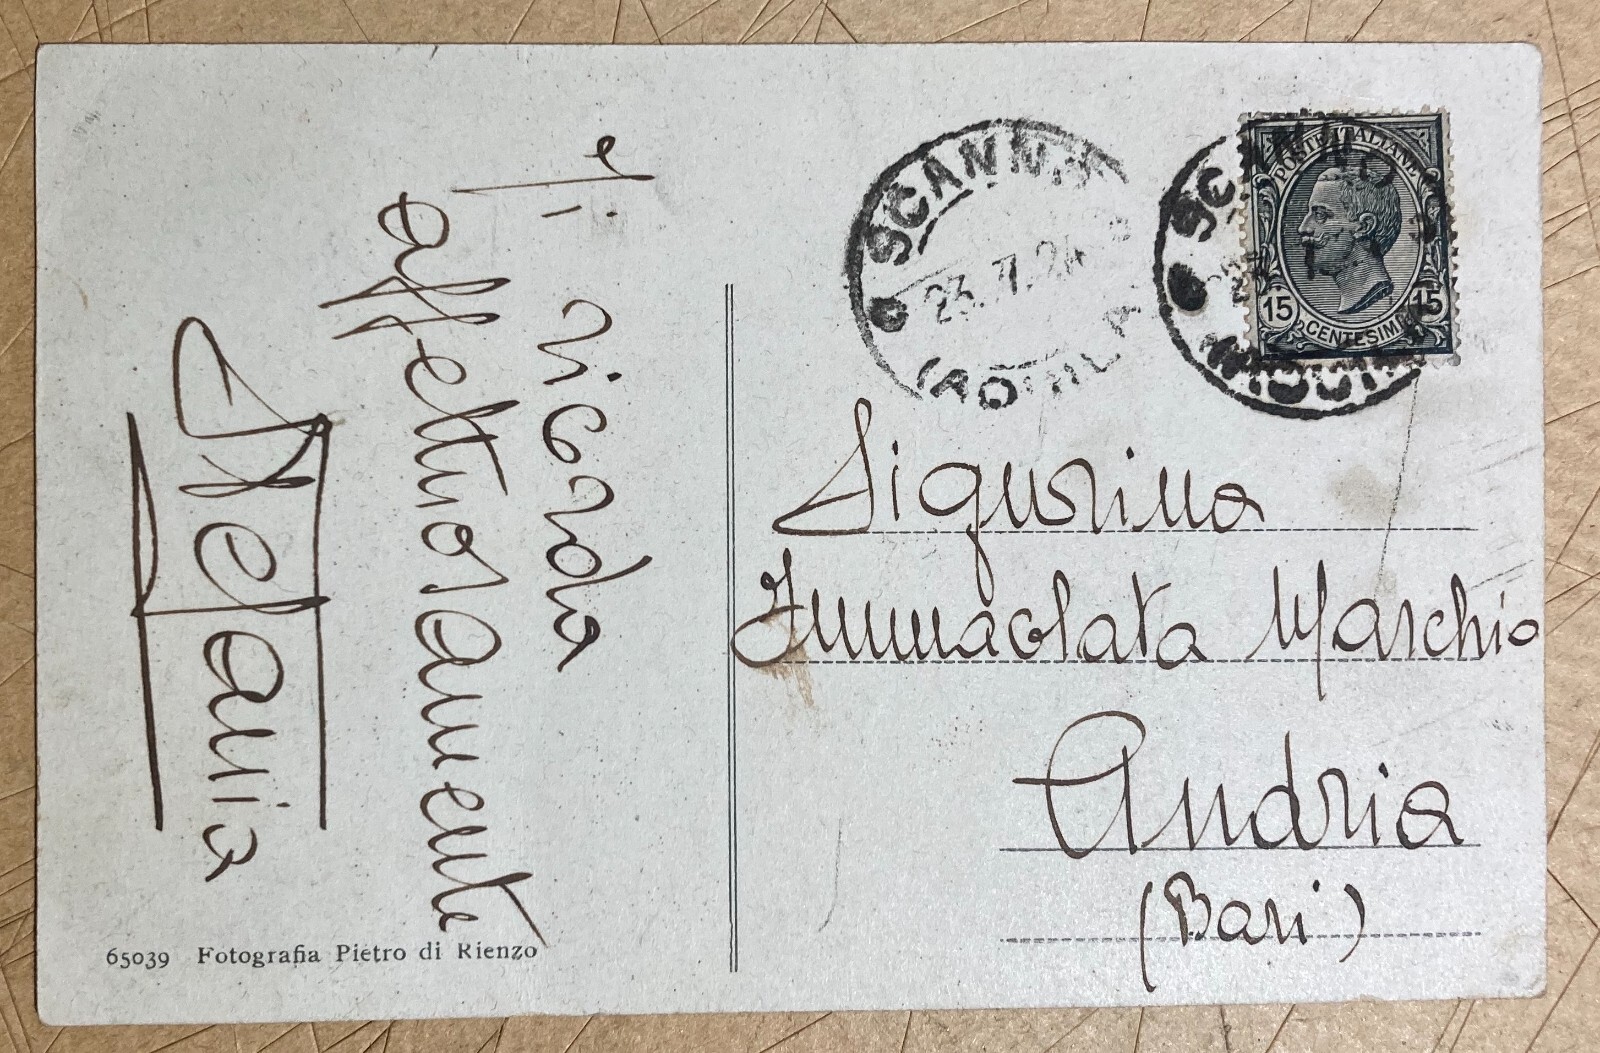 Ti ricordo
affettuosamente
Melania
65039 Fotografia Pietro di Rienzo
SCANNO
23.7.24
(AQUILA)
SCANNO
(AQUILA)
POSTE ITALIANE
15 CENTESIMI 15
Signorina
Immacolata Marchio
Andria
(Bari)